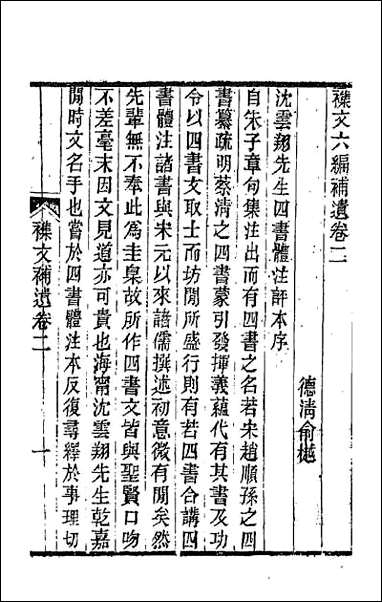 襍文六編補遺卷二
德淸俞樾
沈雲翔先生四書體注評本序
自朱子章句集注出而有四書之名若宋趙順孫之四
書纂疏明蔡淸之四書蒙引發揮義蘊代有其書及功
令以四書文取士而坊閒所盛行則有若四書合講四
書體注諸書與宋元以來諸儒撰述初意微有閒矣然
先輩無不奉此爲圭臬故所作四書文皆與聖賢口吻
不差毫末因文見道亦可貴也海甯沈雲翔先生乾嘉
閒時文名手也嘗於四書體注本反復尋繹於事理切
襍文補遺卷二
一